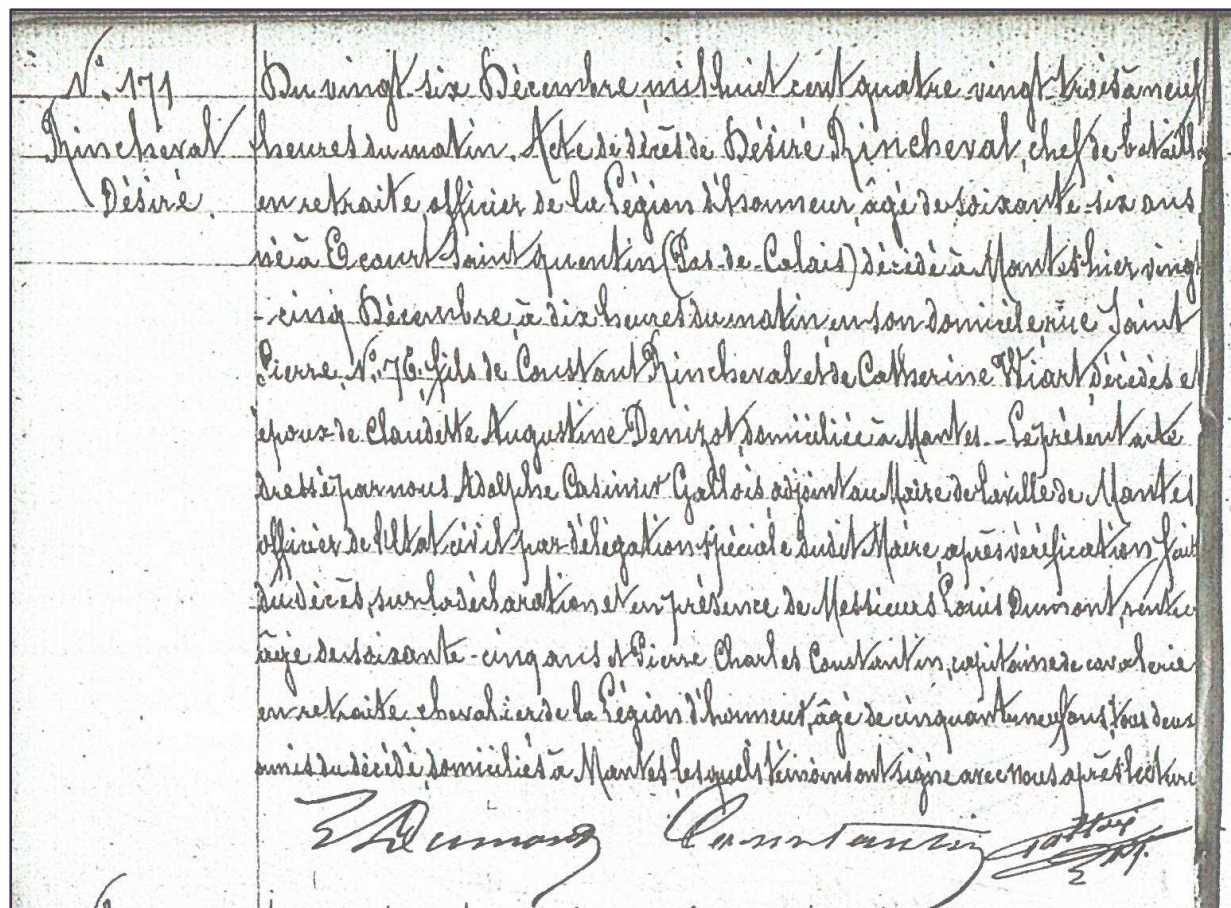 N° 171
Rincheval
Désiré.
Du vingt-six Décembre mil huit cent quatre-vingt-trois à neuf
heures du matin. Acte de décès de Désiré Rincheval, chef de bataillon
en retraite, officier de la Légion d'honneur, âgé de soixante-six ans
né à Ecourt Saint quentin (Pas-de-Calais) décédé à Mantes hier vingt
-cinq Décembre à dix heures du matin en son domicile rue Saint
Pierre, N° 76. fils de Constant Rincheval et de Catherine Wiart décédés et
époux de Claudette Augustine Denizot domiciliée à Mantes. - Le présent acte
dressé par nous Adolphe Casimir Gallois adjoint au Maire de la ville de Mantes
officier de l'Etat civil par délégation spéciale dudit Maire, après vérification faite
du décès, sur la déclaration et en présence de Messieurs Louis Dumont, rentier
âgé de soixante-cinq ans et Pierre Charles Constantin, capitaine de cavalerie
en retraite, chevalier de la Légion d'honneur, âgé de cinquante neuf ans, tous deux
amis du décédé domiciliés à Mantes, lesquels témoins ont signé avec nous après lecture
L Dumont Constantin